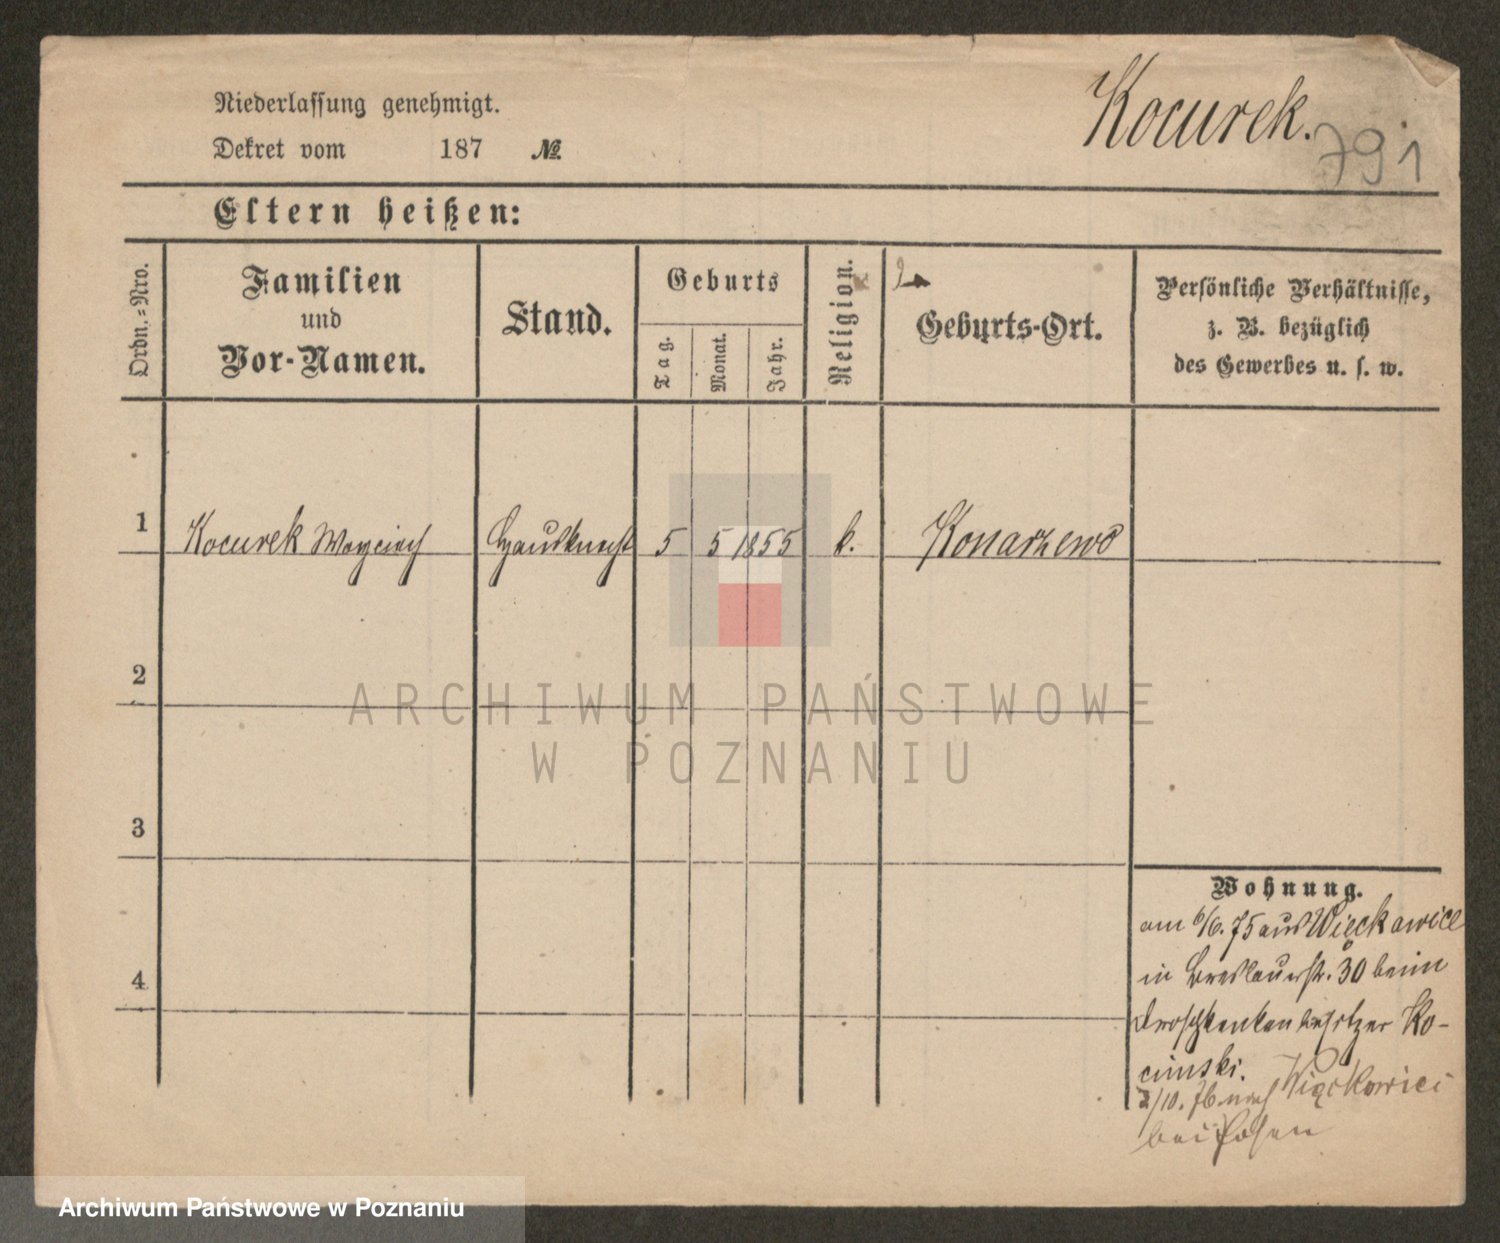 Niederlassung genehmigt.
Kocurek.
791
Dekret vom 187 №
Eltern heißen:
Ordn.-Nro.
Familien
und
Vor-Namen.
Stand.
Geburts
Tag.
Monat.
Jahr.
Religion.
Geburts-Ort.
Persönliche Verhältnisse,
z. B. bezüglich
des Gewerbes u. s. w.
1 Kocurek Woyciech Hausknecht 5 5 1855 k. Konarzewo
2
ARCHIWUM PAŃSTWOWE
W POZNANIU
3
Wohnung.
am 6/6. 75 aus Więckowice
in Breslauerstr. 30 beim
4
Droschkenbesitzer Ko-
cinski.
2/10. 76 nach Więckowice
bei Posen
Archiwum Państwowe w Poznaniu